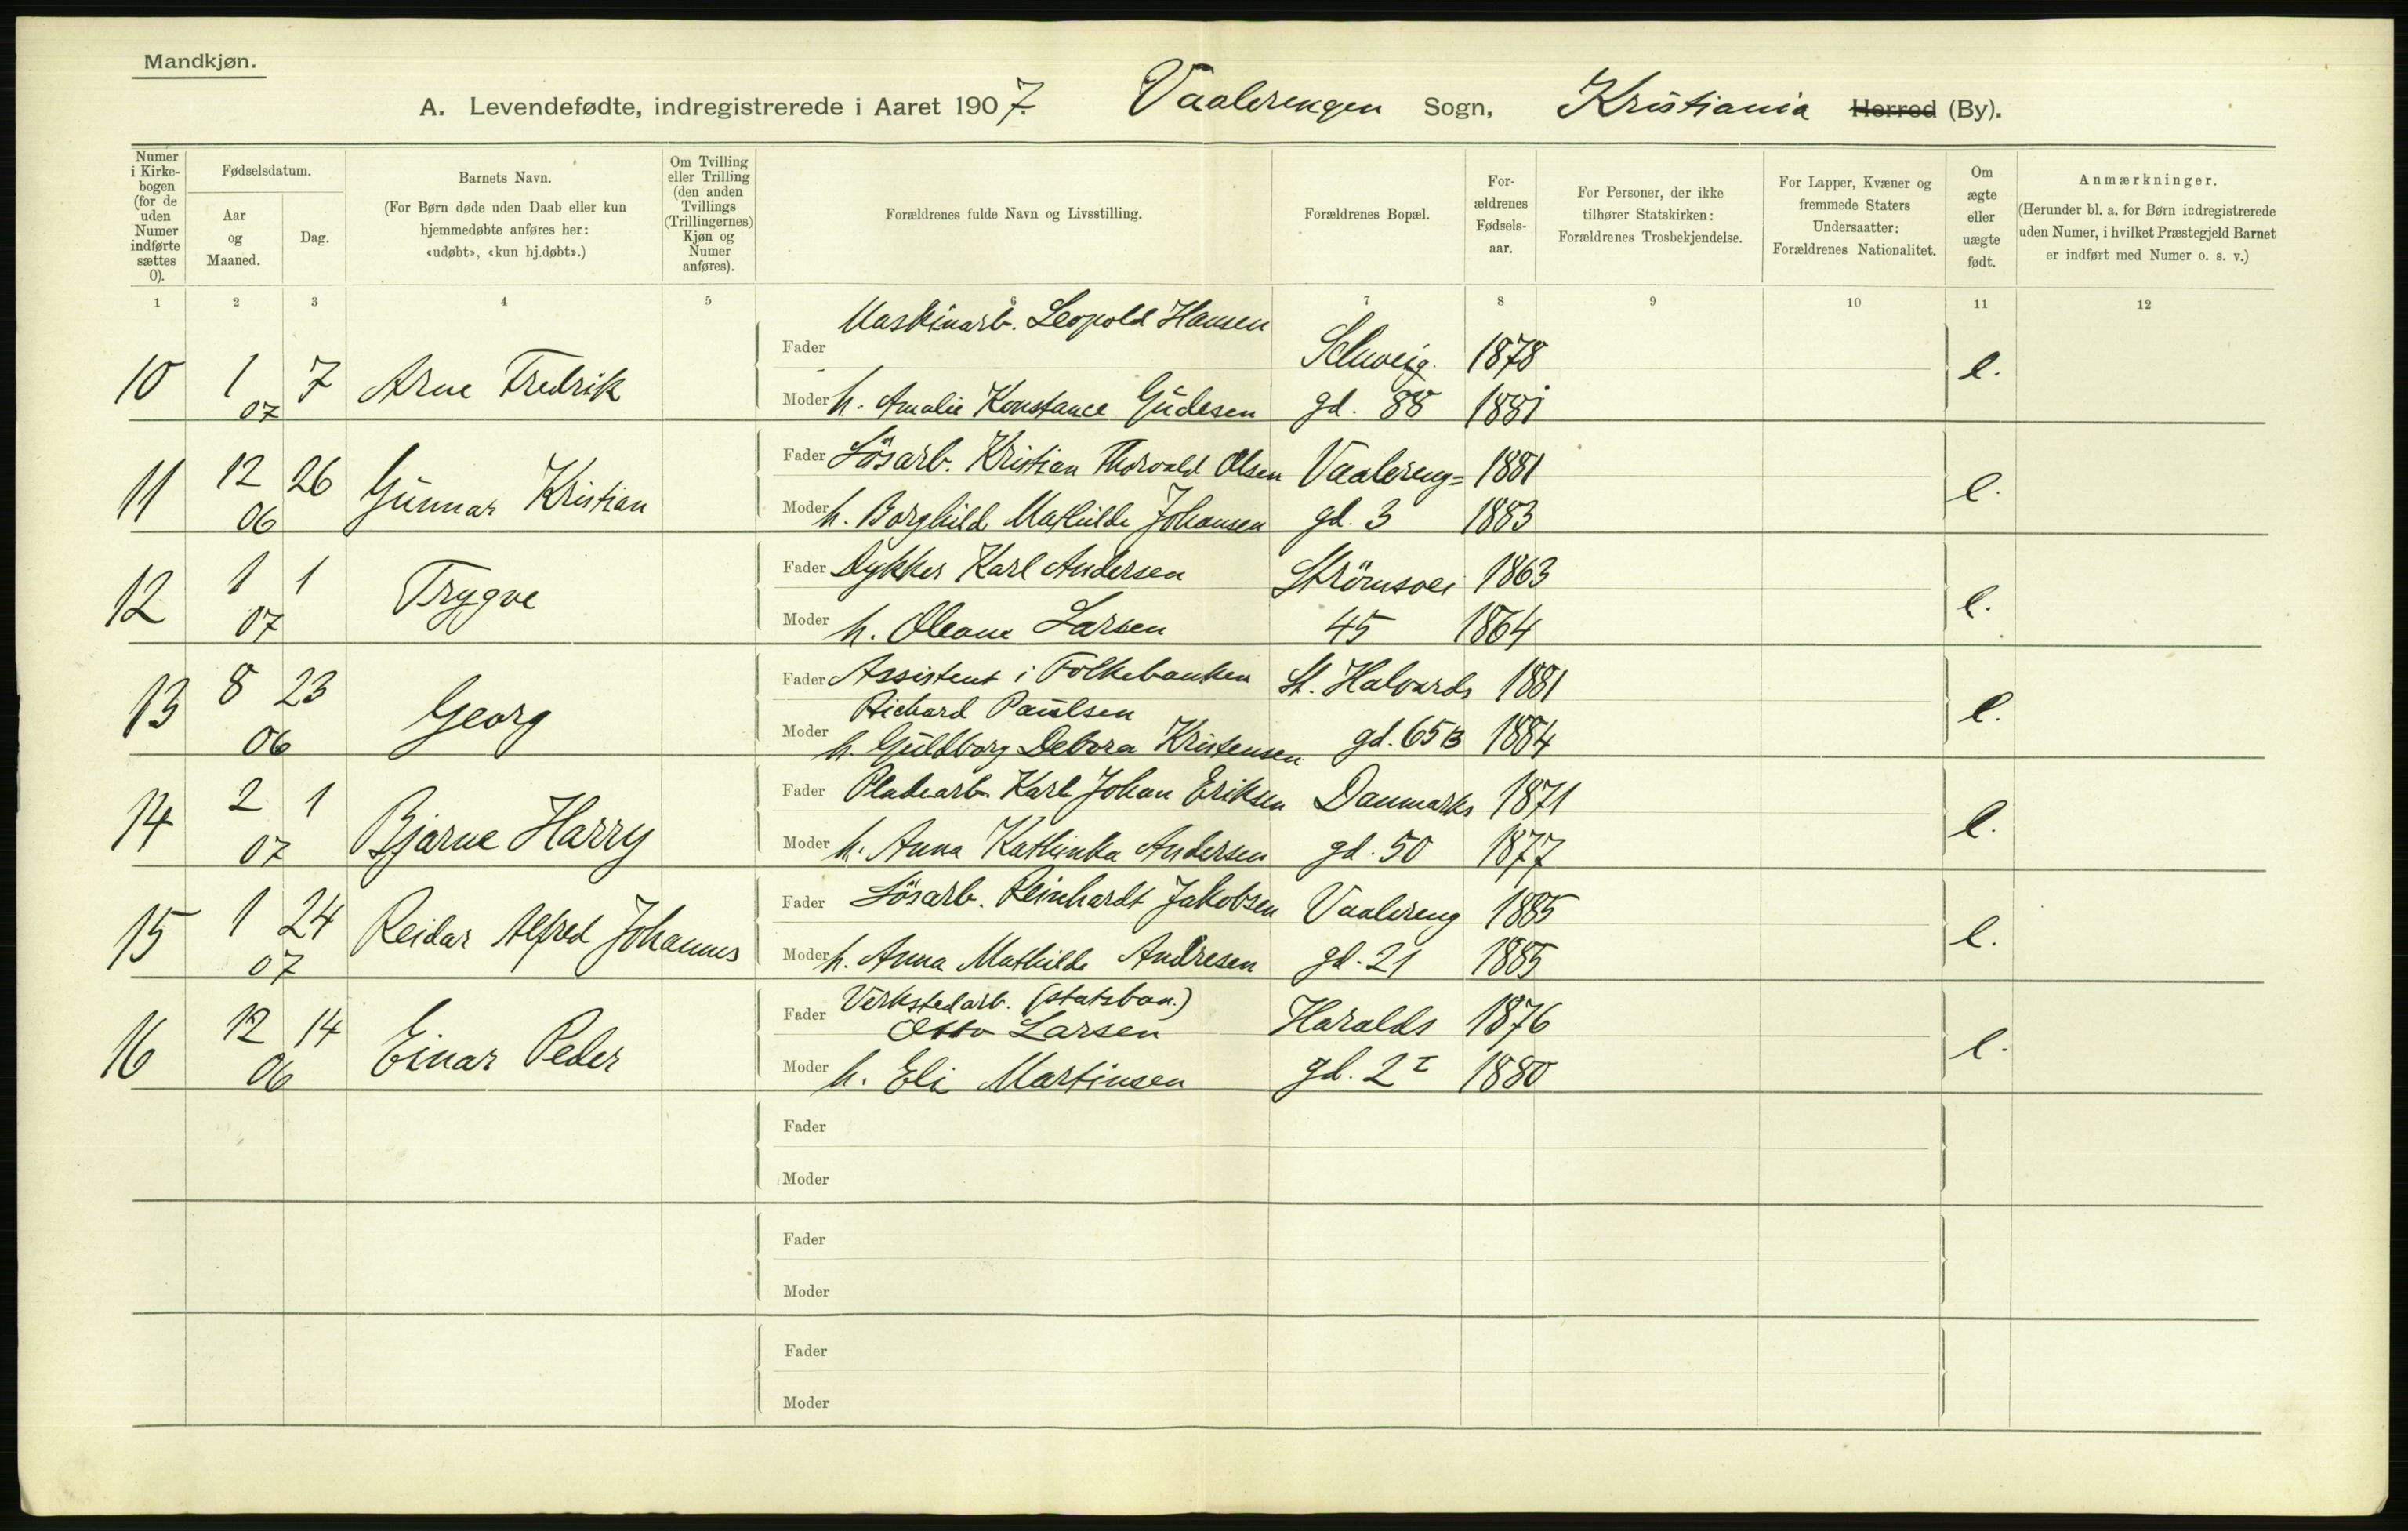 Mandkjøn.
A. Levendefødte, indregistrerede i Aaret 1907. Vaalerengen Sogn, Kristiania Herred (By).
Numer i Kirkebogen (for de uden Numer indførte sættes 0).
Fødselsdatum.
Aar og Maaned.
Dag.
Barnets Navn.
(For Børn døde uden Daab eller kun hjemmedøbte anføres her: «udøbt», «kun hj.døbt».)
Om Tvilling eller Trilling (den anden Tvillings (Trillingernes) Kjøn og Numer anføres).
Forældrenes fulde Navn og Livsstilling.
Forældrenes Bopæl.
Forældrenes Fødselsaar.
For Personer, der ikke tilhører Statskirken: Forældrenes Trosbekjendelse.
For Lapper, Kvæner og fremmede Staters Undersaatter: Forældrenes Nationalitet.
Om ægte eller uægte født.
Anmærkninger.
(Herunder bl. a. for Børn indregistrerede uden Numer, i hvilket Præstegjeld Barnet er indført med Numer o. s. v.)
1 2 3 4 5 6 7 8 9 10 11 12
10 1 07 7 Arne Fredrik
Fader Maskinarb. Leopold Hansen Schweig. 1878
Moder h. Amalie Konstance Gudesen gd. 88 1881
e.
11 12 06 26 Gunnar Kristian
Fader Løsarb. Kristian Thorvald Olsen Vaalereng= 1881
Moder h. Borghild Mathilde Johansen gd. 3 1883
e.
12 1 07 1 Trygve
Fader Dykker Karl Andersen Strömsvei 1863
Moder h. Oleane Larsen 45 1864
e.
13 8 06 23 Georg
Fader Assistent i Folkebanken St. Halvards 1881
Richard Paulsen
Moder h. Guldborg Debora Kristensen gd. 65B 1884
e.
14 2 07 1 Bjarne Harry
Fader Pladearb. Karl Johan Eriksen Danmarks 1871
Moder h. Anna Kathinka Andersen gd. 50 1877
e.
15 1 07 24 Reidar Alfred Johannes
Fader Løsarb. Reinhardt Jakobsen Vaalereng 1885
Moder h. Anna Mathilde Andresen gd. 21 1885
e.
16 12 06 14 Einar Peder
Fader Verkstedarb. (statsban.)
Otto Larsen Haralds 1876
Moder h. Eli Martinsen gd. 2 I 1880
e.
Fader
Moder
Fader
Moder
Fader
Moder